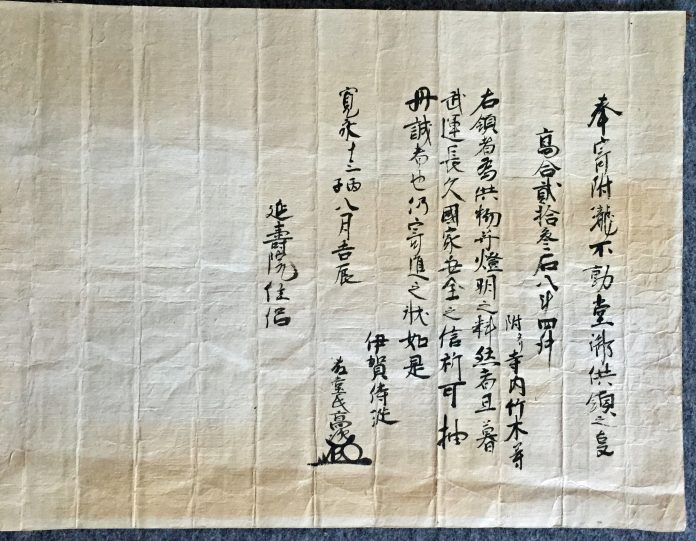 奉寄附瀧不動堂御供領之夏
高合貮拾叄石八斗四升
附り寺内竹木等
右領者為供物并燈明之料然者旦暮
武運長久國家安全之信祈可抽
丹誠者也仍寄進之状如是
寛永十三丙子八月吉辰
伊賀侍従
藤重氏高次
延壽院住侶